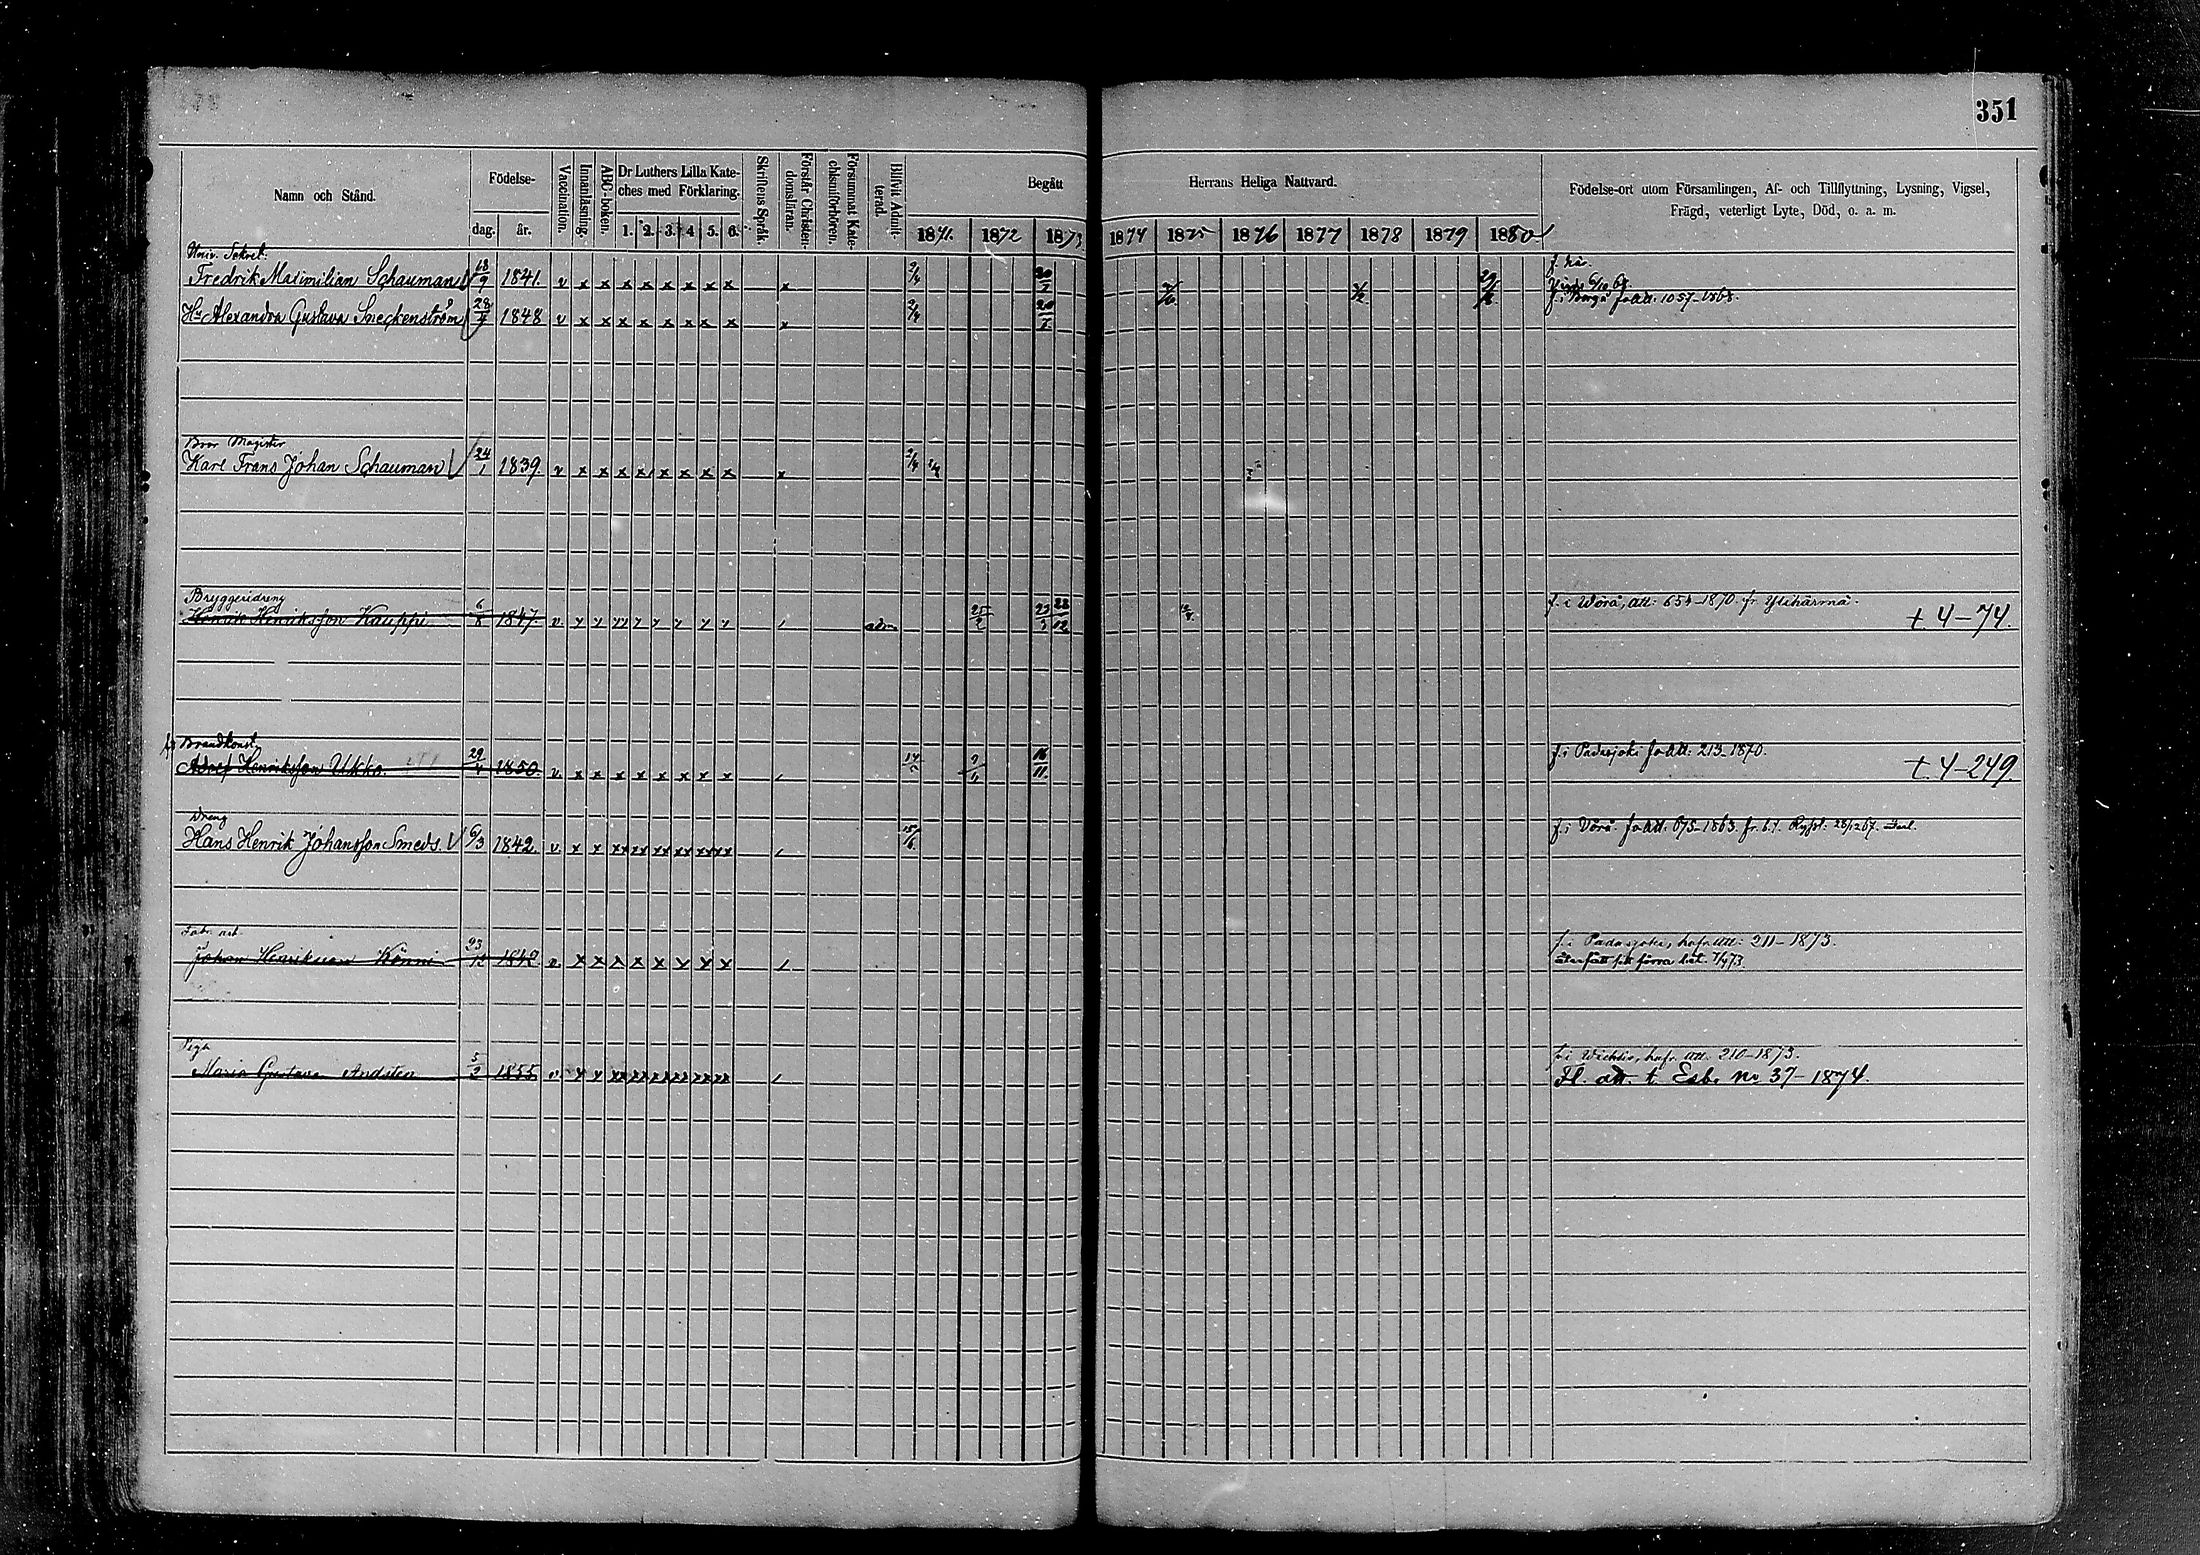 351
Namn och Stånd.
Födelse-
dag. år.
Vaccination.
Innanläsning.
ABC-boken.
Dr Luthers Lilla Kate-
ches med Förklaring.
1. 2. 3. 4 5. 6.
Skriftens Språk.
Förstår Christen-
domsläran.
Försummat Kate-
chismiförhören.
Blifvit Admit-
terad.
Begått Herrans Heliga Nattvard.
1871. 1872 1873 1874 1875 1876 1877 1878 1879 1880
Födelse-ort utom Församlingen, Af- och Tillflyttning, Lysning, Vigsel,
Frägd, veterligt Lyte, Död, o. a. m.
Univ. Sekret:
Fredrik Maximilian Schauman 18/9 1841. v x x x x x x x x x 2/4
Hu Alexandra Gustava Sneckenström 28/7 1848 v x x x x x x x x x 2/4 f. i Borgå fr att: 1057-1868.
Bror Magister
Karl Frans Johan Schauman 24/1 1839. v x x x x x x x x x 2/4
Bryggeridreng
Henrik Henriksson Kauppi 6/8 1847. v. adm f. i Wörå, att: 654-1870. fr. Ylihärmä. t. 4-74.
Brandkonst.
Henriksson Ukko. 29/4 1850. v x x x x x x x x 16/11 f. i Padasjoki fr att: 213-1870. t. 4-249
Dreng
Hans Henrik Johansson Smeds. 6/3 1842. v x x xx xx xx xx xx f. i Vörå. fr att: 675-1863.
Fabr. arb.
Johan Henriksson Könni 23/12 1842 v x x x x x x x x f. i Padasjoki, hafr. att: 211-1873.
Piga
Maria Gustava Andsten 5/2 1855 v. f. i Wichtis, hafr. att. 210-1873.
Fl. att. t. Esb. No 37-1874.